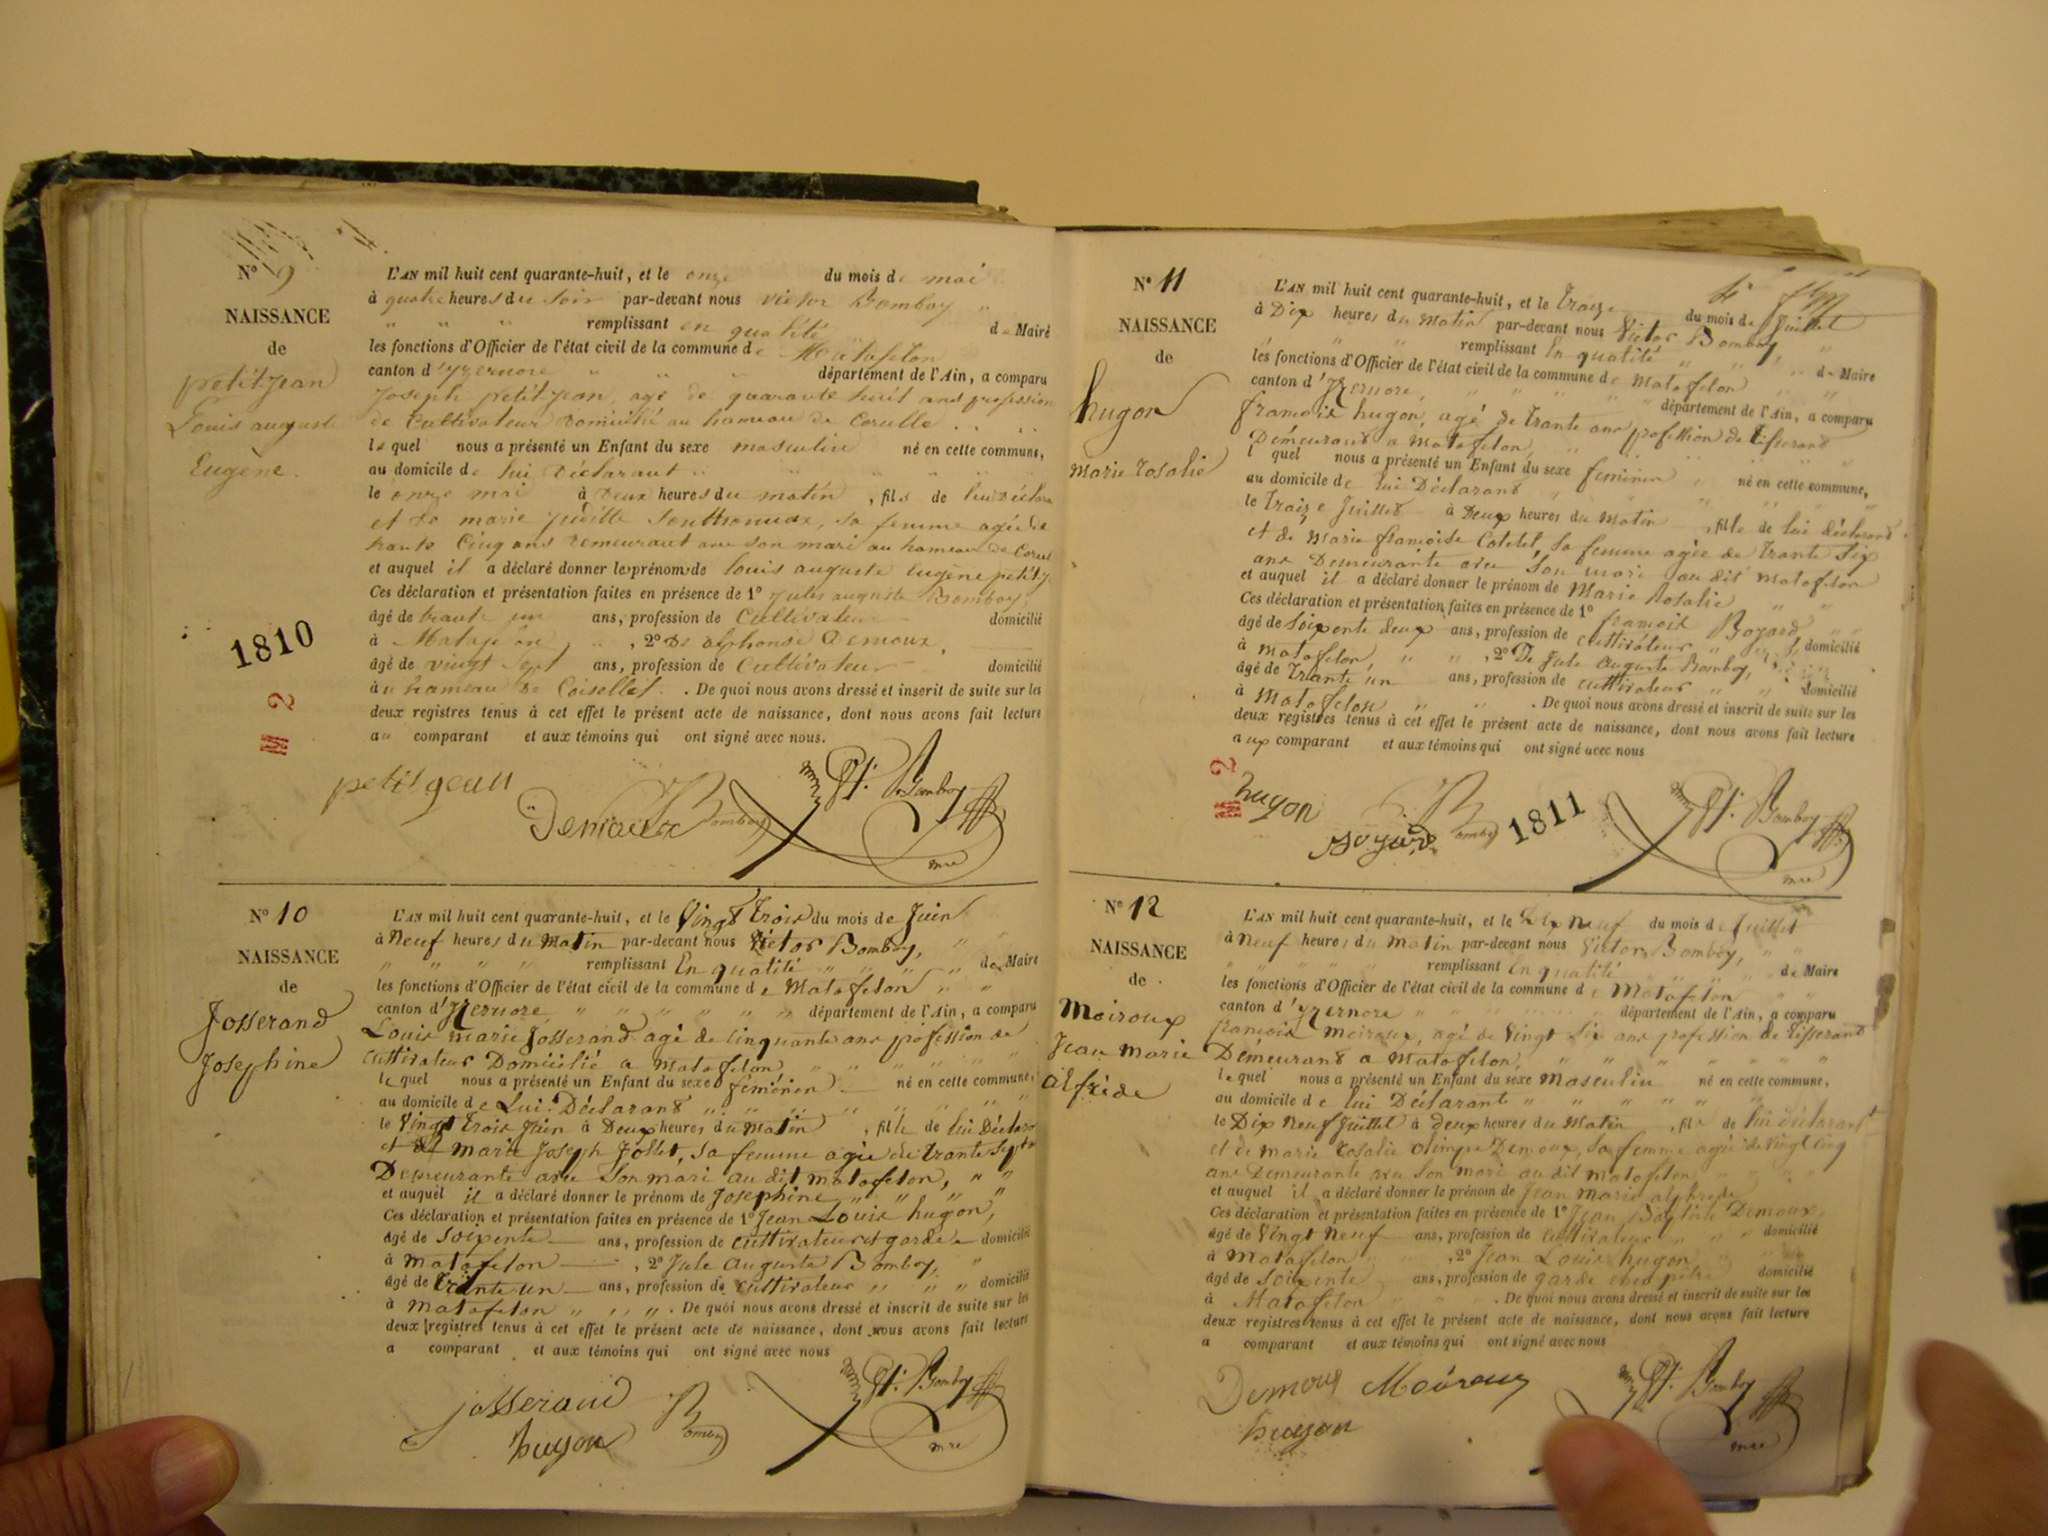 N° 9
NAISSANCE
de
petitjean
Louis auguste
Eugène.
L'AN mil huit cent quarante-huit, et le onze du mois de mai
à quatre heures du soir par-devant nous victor Bomboy
remplissant en qualité de Maire
les fonctions d'Officier de l'état civil de la commune de Matafelon
canton d'Yzernore département de l'Ain, a comparu
Joseph petitjean, agé de quarante huit ans profession
de Cultivateur domicilié au hameau de Corcelle
lequel nous a présenté un Enfant du sexe masculin né en cette commune,
au domicile de lui Déclarant
le onze mai à deux heures du matin, fils de lui Déclara
et de marie femme agée de
trante Cinq ans demeurant avec son mari au hameau de
et auquel il a déclaré donner les prénoms de louis auguste Eugène petitj.
Ces déclaration et présentation faites en présence de 1° Jules auguste Bomboy,
âgé de trante un ans, profession de Cultivateur domicilié
à Matafelon, 2° De alphonse Demoux,
âgé de vingt sept ans, profession de Cultivateur domicilié
au hameau de Coisellet. De quoi nous avons dressé et inscrit de suite sur les
deux registres tenus à cet effet le présent acte de naissance, dont nous avons fait lecture
au comparant et aux témoins qui ont signé avec nous.
1810
2
petitgean
Demoux Bomboy Bomboy
mre
N° 10
NAISSANCE
de
Josserand
Josephine
L'AN mil huit cent quarante-huit, et le Vingt trois du mois de Juin
à Neuf heures du Matin par-devant nous Victor Bomboy,
remplissant En qualité de Maire
les fonctions d'Officier de l'état civil de la commune de Matafelon
canton d'Yzernore département de l'Ain, a comparu
Louis marie Josserand agé de Cinquante ans profession de
Cultivateur Domicilié a Matafelon
lequel nous a présenté un Enfant du sexe féminin né en cette commune,
au domicile de Lui Déclarant
le Vingt trois Juin à Deux heures du Matin, fille de lui Déclara
et de Marie Joseph Jollet, Sa femme agée de trante Sept
Demeurante avec Son mari au dit matafelon,
et auquel il a déclaré donner le prénom de Josephine
Ces déclaration et présentation faites en présence de 1° Jean Louis hugon,
âgé de Soixente ans, profession de Cultivateur et garde domicilié
à Matafelon, 2° Jule Auguste Bomboy,
âgé de trante un ans, profession de Cultivateur domicilié
à Matafelon. De quoi nous avons dressé et inscrit de suite sur les
deux registres tenus à cet effet le présent acte de naissance, dont nous avons fait lecture
a comparant et aux témoins qui ont signé avec nous
josserand Bomboy Bomboy
hugon mre
N° 11
NAISSANCE
de
hugon
Marie Rosalie
L'AN mil huit cent quarante-huit, et le traize du mois de Juillet
à Dix heures du Matin par-devant nous Victor Bomboy
remplissant En qualité de Maire
les fonctions d'Officier de l'état civil de la commune de Matafelon
canton d'Yzernore, département de l'Ain, a comparu
françois hugon, agé de trante ans profession de tisserand
Demeurant a Matafelon,
lequel nous a présenté un Enfant du sexe féminin né en cette commune,
au domicile de lui Déclarant
le traize Juillet à Deux heures du Matin, fille de lui déclarant
et de Marie françoise Sa femme agée de trante Six
ans Demeurante avec Son mari au dit Matafelon
et auquel il a déclaré donner le prénom de Marie Rosalie
Ces déclaration et présentation faites en présence de 1° françois Bozard,
âgé de Soixente deux ans, profession de Cultivateur domicilié
à Matafelon, 2° De Jule Auguste Bomboy,
âgé de trante un ans, profession de Cultivateur domicilié
à Matafelon. De quoi nous avons dressé et inscrit de suite sur les
deux registres tenus à cet effet le présent acte de naissance, dont nous avons fait lecture
aux comparant et aux témoins qui ont signé avec nous
2
hugon Bomboy 1811 Bomboy
mre
N° 12
NAISSANCE
de
Moiroux
Jean Marie
alfrède
L'AN mil huit cent quarante-huit, et le Dix Neuf du mois de Juillet
à Neuf heures du Matin par-devant nous Victor Bomboy,
remplissant En qualité de Maire
les fonctions d'Officier de l'état civil de la commune de Matafelon
canton d'Yzernore département de l'Ain, a comparu
françois Moiroux, agé de Vingt Six ans profession de tisserand
Demeurant a Matafelon,
lequel nous a présenté un Enfant du sexe Masculin né en cette commune,
au domicile de lui Déclarant
le Dix Neuf Juillet à deux heures du Matin, fils de lui déclarant
et de Marie Rosalie olimpe Demoux, Sa femme agée de Vingt Cinq
ans Demeurante avec Son mari au dit Matafelon
et auquel il a déclaré donner le prénom de Jean Marie alphrede
Ces déclaration et présentation faites en présence de 1° Jean Baptiste Demoux,
âgé de Vingt Neuf ans, profession de Cultivateur domicilié
à Matafelon, 2° Jean Louis hugon
âgé de Soixente ans, profession de garde domicilié
à Matafelon. De quoi nous avons dressé et inscrit de suite sur les
deux registres tenus à cet effet le présent acte de naissance, dont nous avons fait lecture
a comparant et aux témoins qui ont signé avec nous
Demoux Moiroux Bomboy
hugon mre